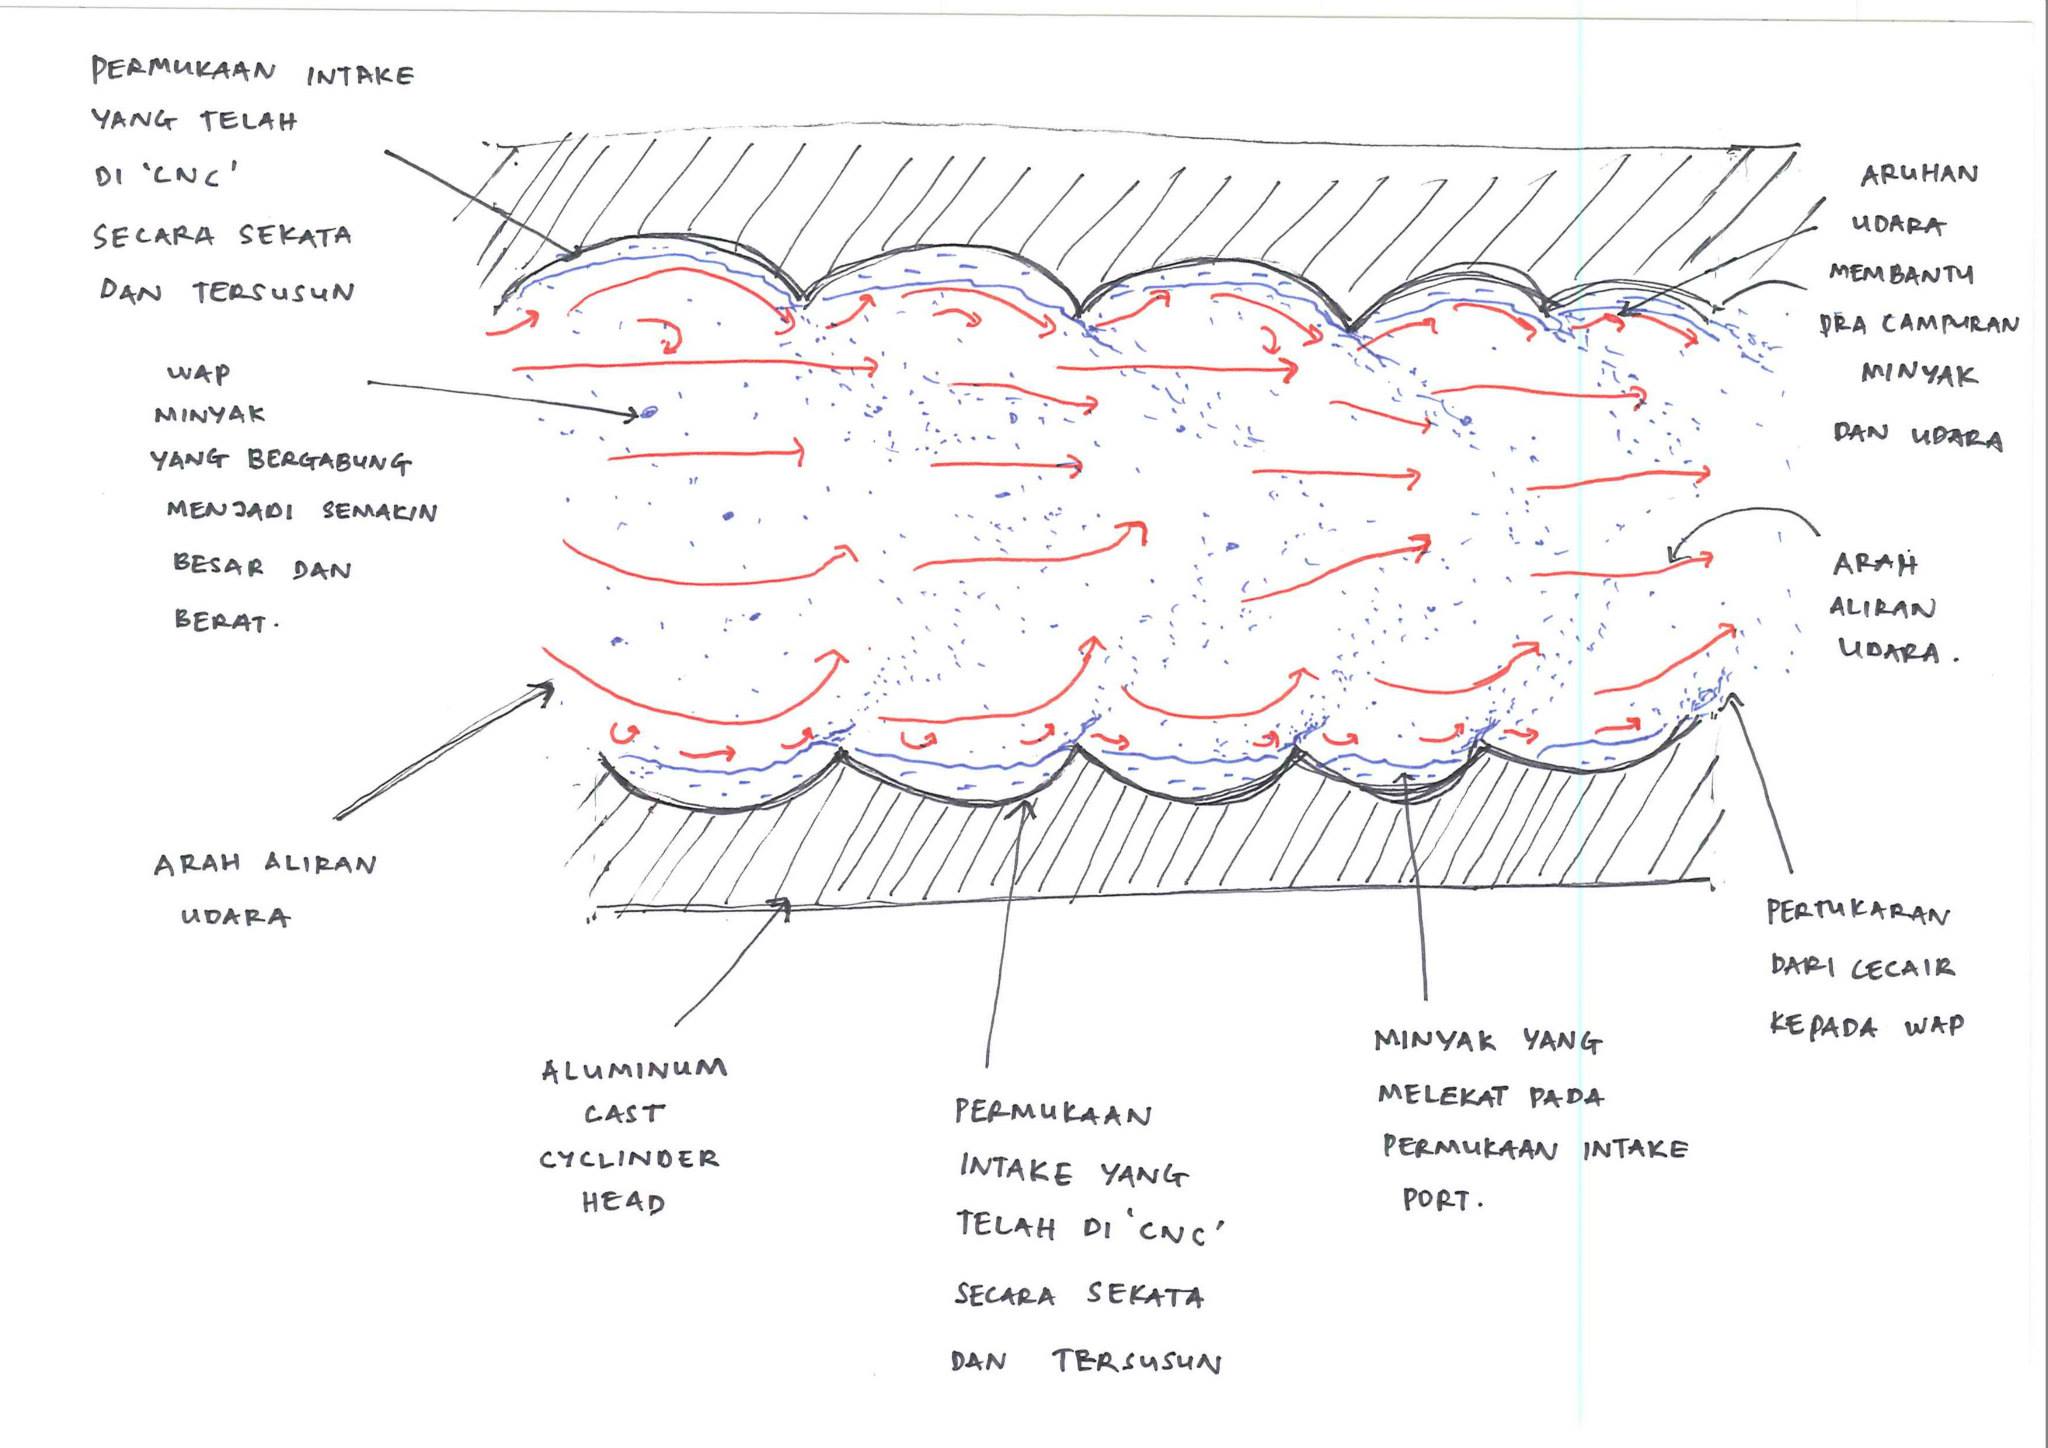 PERMUKAAN INTAKE
YANG TELAH
DI 'CNC'
SECARA SEKATA
DAN TERSUSUN
WAP
MINYAK
YANG BERGABUNG
MENJADI SEMAKIN
BESAR DAN
BERAT.
ARAH ALIRAN
UDARA
ALUMINUM
CAST
CYCLINDER
HEAD
PERMUKAAN
INTAKE YANG
TELAH DI 'CNC'
SECARA SEKATA
DAN TERSUSUN
MINYAK YANG
MELEKAT PADA
PERMUKAAN INTAKE
PORT.
PERTUKARAN
DARI CECAIR
KEPADA WAP
ARAH
ALIRAN
UDARA.
ARUHAN
UDARA
MEMBANTU
PRA CAMPURAN
MINYAK
DAN UDARA